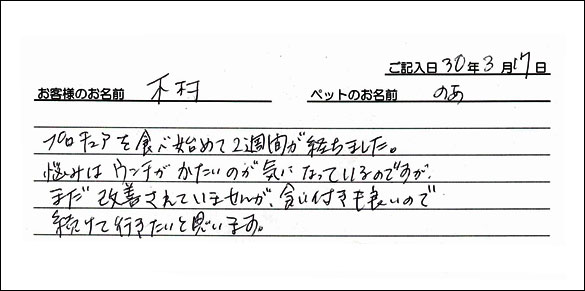 ご記入日 30年 3月 17日
お客様のお名前 木村 ペットのお名前 のあ
プロキュアを食べ始めて2週間が経ちました。
悩みはウンチがかたいのが気になっているのですが、
まだ改善されていませんが、食い付きも良いので
続けて行きたいと思います。